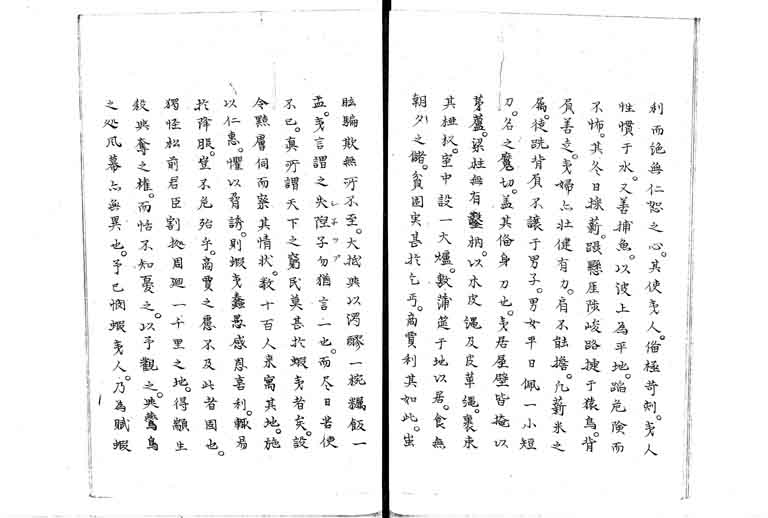 利而絶無仁恕之心。其使夷人。備極苛刻。夷人
性慣于水。又善捕魚。以波上為平地。蹈危険而
不怖。其冬日採薪。躡懸厓陟峻路捷于猿鳥。背
負善走。夷婦亦壮健有力。肩不能擔。凡薪米之
属。徒跣背負不譲于男子。男女平日佩一小短
刀。名之魔切。蓋其備身刀也。夷居屋壁皆掩以
茅蘆。梁柱無有鑿枘。以木皮縄及皮草縄。裹束
其椏杈。室中設一大爐。敷蒲筵于地以居。食無
朝夕之儲。貧困実甚於乞丐。商賈利其如此。蚩
眩騙欺無所不至。大抵与以濁醪一椀糲飯一
盂。夷言謂之失隉子勿猶言二也。而尽日苦使
レチツブ
不已。真所謂天下之窮民莫甚於蝦夷者矣。設
令黠虜伺而察其情状。数十百人来寓其地。施
以仁恵。懼以脅誘。則蝦夷蠢愚感恩喜利。輙易
於降服。豈不危殆乎。商賈之慮不及此者固也。
独怪松前君臣割拠周廻一千里之地。得顓生
殺与奪之権。而恬不知憂之。以予観之。与鷙鳥
之処凧幕亦無異也。予已憫蝦夷人。乃為賦蝦